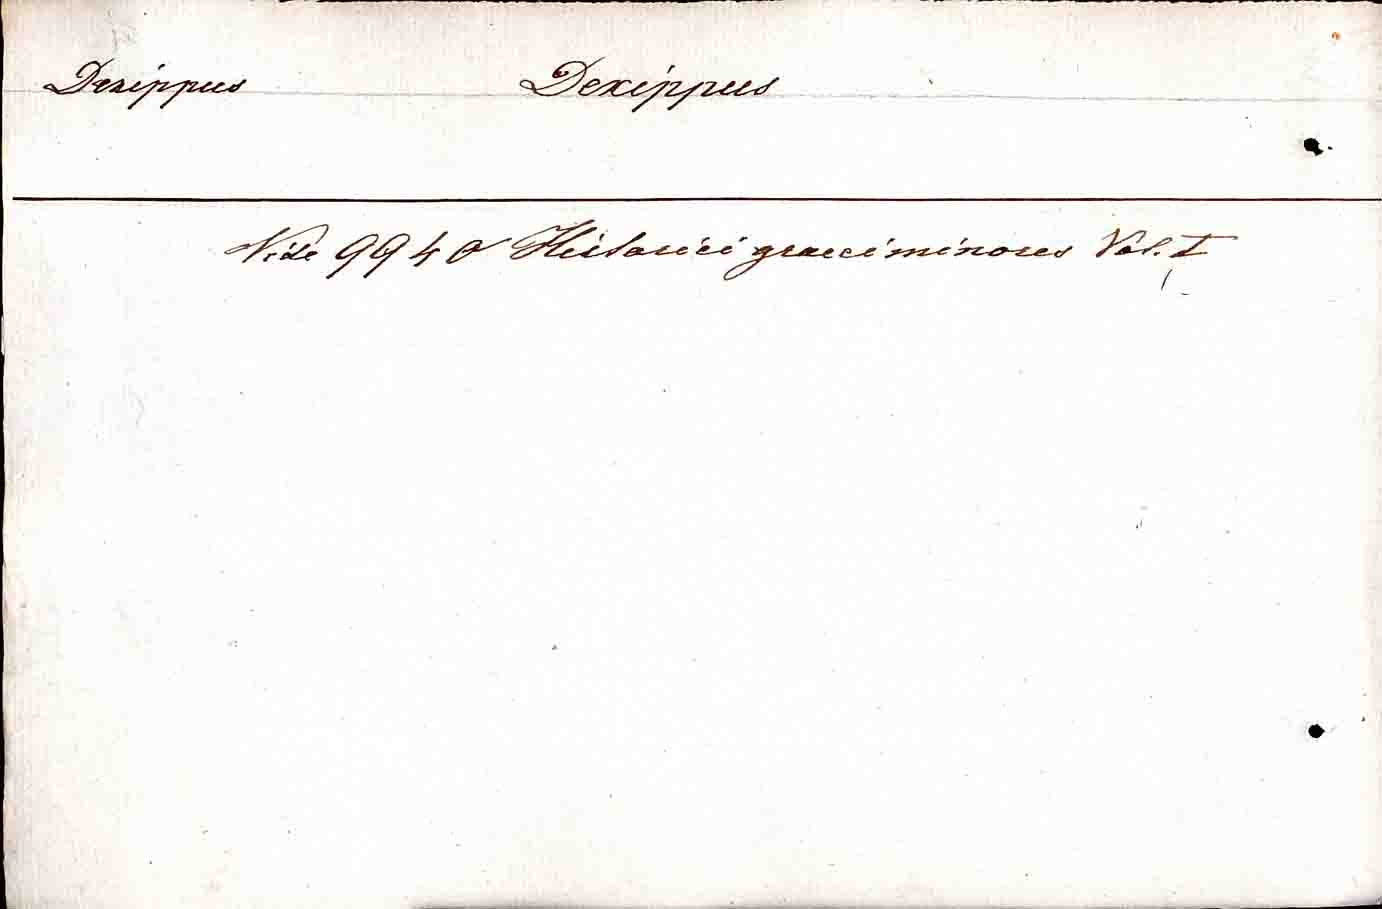 Dexippus Dexippus
Vide 9940 Historici graeci minores Vol. I